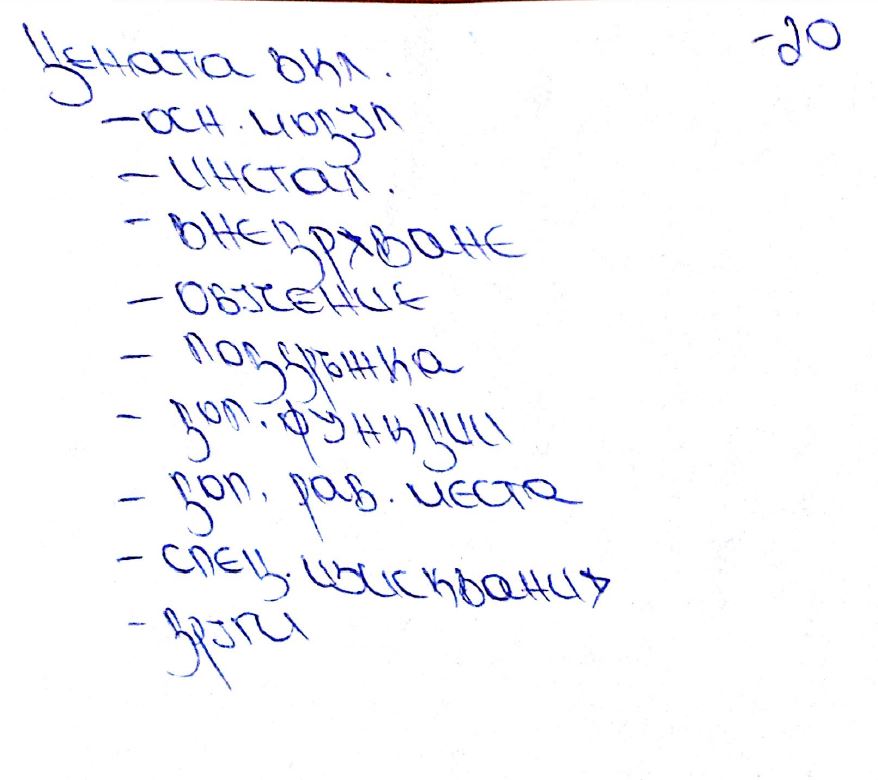 -20
Цената вкл.
- осн. модул
- инстал.
- внедряване
- обучение
- поддръжка
- доп. функции
- доп. раб. места
- спец. изисквания
- други